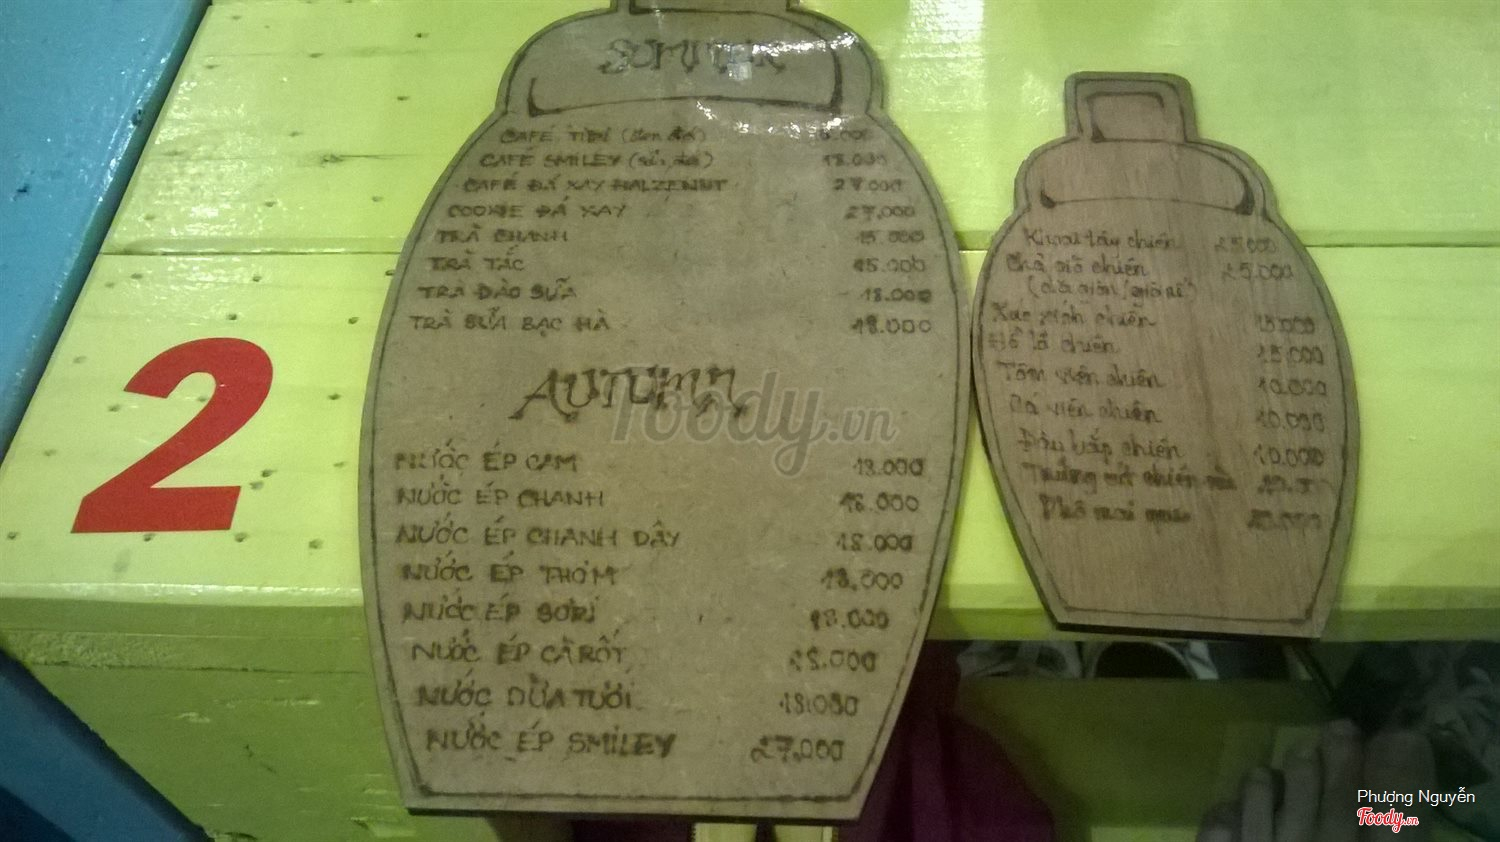 SUMMER
CAFÉ TIỀN (đen, đá)
CAFÉ SMILEY (sữa, đá) 18.000
CAFÉ ĐÁ XAY HALZENUT 27.000
COOKIE ĐÁ XAY 27.000
TRÀ CHANH 15.000
TRÀ TẮC 15.000
TRÀ ĐÀO SỮA 18.000
TRÀ SỮA BẠC HÀ 18.000
AUTUMN
NƯỚC ÉP CAM 18.000
NƯỚC ÉP CHANH 18.000
NƯỚC ÉP CHANH DÂY 18.000
NƯỚC ÉP THƠM 18.000
NƯỚC ÉP SƠRI 18.000
NƯỚC ÉP CÀ RỐT 18.000
NƯỚC DỪA TƯƠI 18.000
NƯỚC ÉP SMILEY 27.000
Khoai tây chiên
Chả giò chiên 25.000
Xúc xích chiên 15.000
Hồ lô chiên 15.000
Tôm viên chiên 10.000
Cá viên chiên 10.000
Đậu bắp chiên 10.000
Trứng cút chiên
Phô mai que
2
Foody.vn
Phượng Nguyễn
Foody.vn